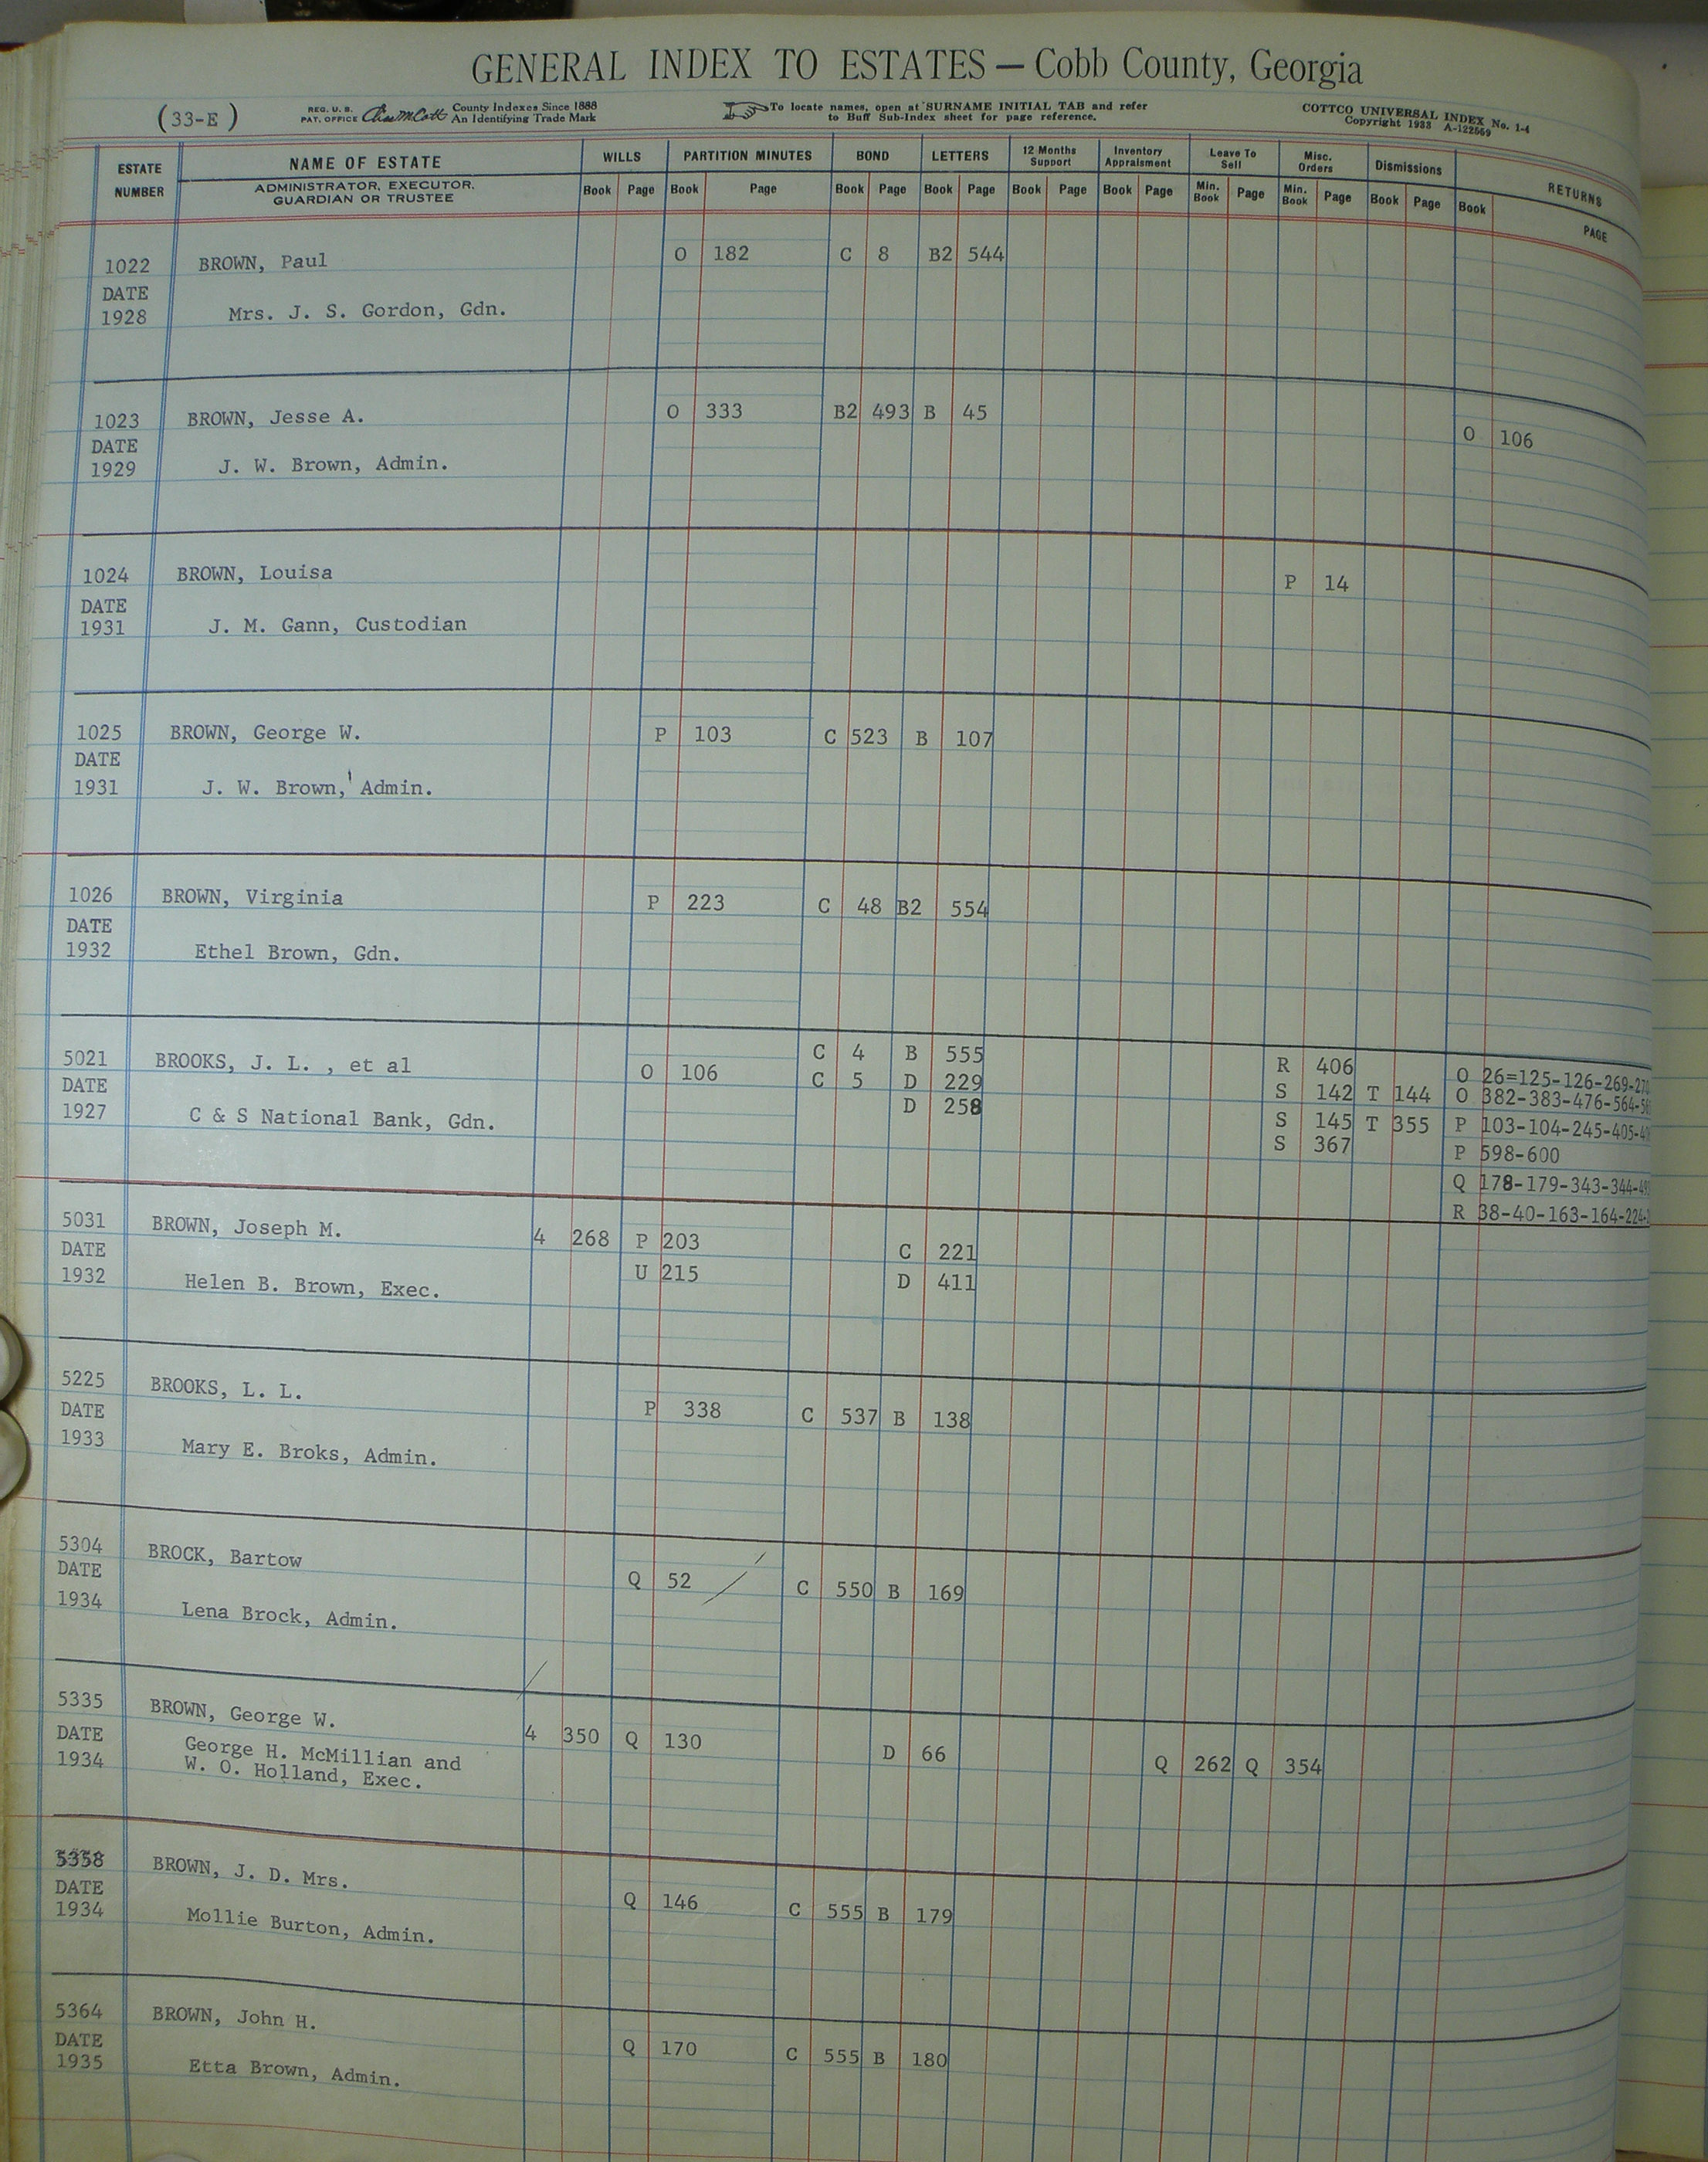 GENERAL INDEX TO ESTATES — Cobb County, Georgia
(33-E)
REG. U. S. PAT. OFFICE
County Indexes Since 1888
An Identifying Trade Mark
To locate names, open at SURNAME INITIAL TAB and refer
to Buff Sub-Index sheet for page reference.
COTTCO UNIVERSAL INDEX No. 1-4
Copyright 1933 A-122569
ESTATE NUMBER NAME OF ESTATE WILLS PARTITION MINUTES BOND LETTERS 12 Months Support Inventory Appraisment Leave To Sell Misc. Orders Dismissions RETURNS
ADMINISTRATOR, EXECUTOR, GUARDIAN OR TRUSTEE Book Page Book Page Book Page Book Page Book Page Book Page Min. Book Page Min. Book Page Book Page Book PAGE
1022 BROWN, Paul O 182 C 8 B2 544
DATE
1928 Mrs. J. S. Gordon, Gdn.
1023 BROWN, Jesse A. O 333 B2 493 B 45
DATE O 106
1929 J. W. Brown, Admin.
1024 BROWN, Louisa P 14
DATE
1931 J. M. Gann, Custodian
1025 BROWN, George W. P 103 C 523 B 107
DATE
1931 J. W. Brown, Admin.
1026 BROWN, Virginia P 223 C 48 B2 554
DATE
1932 Ethel Brown, Gdn.
5021 BROOKS, J. L. , et al O 106 C 4 B 555 R 406 O 26=125-126-269-270
DATE C 5 D 229 S 142 T 144 O 382-383-476-564-
1927 C & S National Bank, Gdn. D 258 S 145 T 355 P 103-104-245-405-
S 367 P 598-600
Q 178-179-343-344-
R 38-40-163-164-224-
5031 BROWN, Joseph M. 4 268 P 203 C 221
DATE U 215 D 411
1932 Helen B. Brown, Exec.
5225 BROOKS, L. L.
DATE P 338 C 537 B 138
1933 Mary E. Broks, Admin.
5304 BROCK, Bartow
DATE Q 52 C 550 B 169
1934 Lena Brock, Admin.
5335 BROWN, George W.
DATE George H. McMillian and 4 350 Q 130 D 66 Q 262 Q 354
1934 W. O. Holland, Exec.
5358 BROWN, J. D. Mrs.
DATE Q 146 C 555 B 179
1934 Mollie Burton, Admin.
5364 BROWN, John H.
DATE Q 170 C 555 B 180
1935 Etta Brown, Admin.